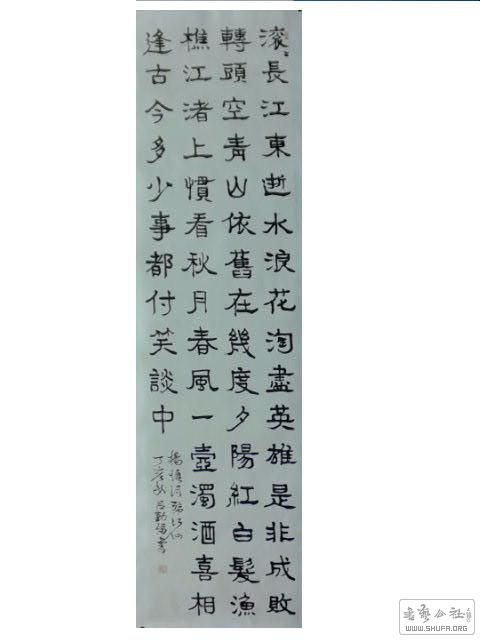 滚〻長江東逝水浪花淘盡英雄是非成敗
轉頭空青山依舊在幾度夕陽紅白髮漁
樵江渚上慣看秋月春風一壺濁酒喜相
逢古今多少事都付笑談中
楊慎詞臨江仙
丁亥秋書
书艺公社
WWW.SHUFA.ORG